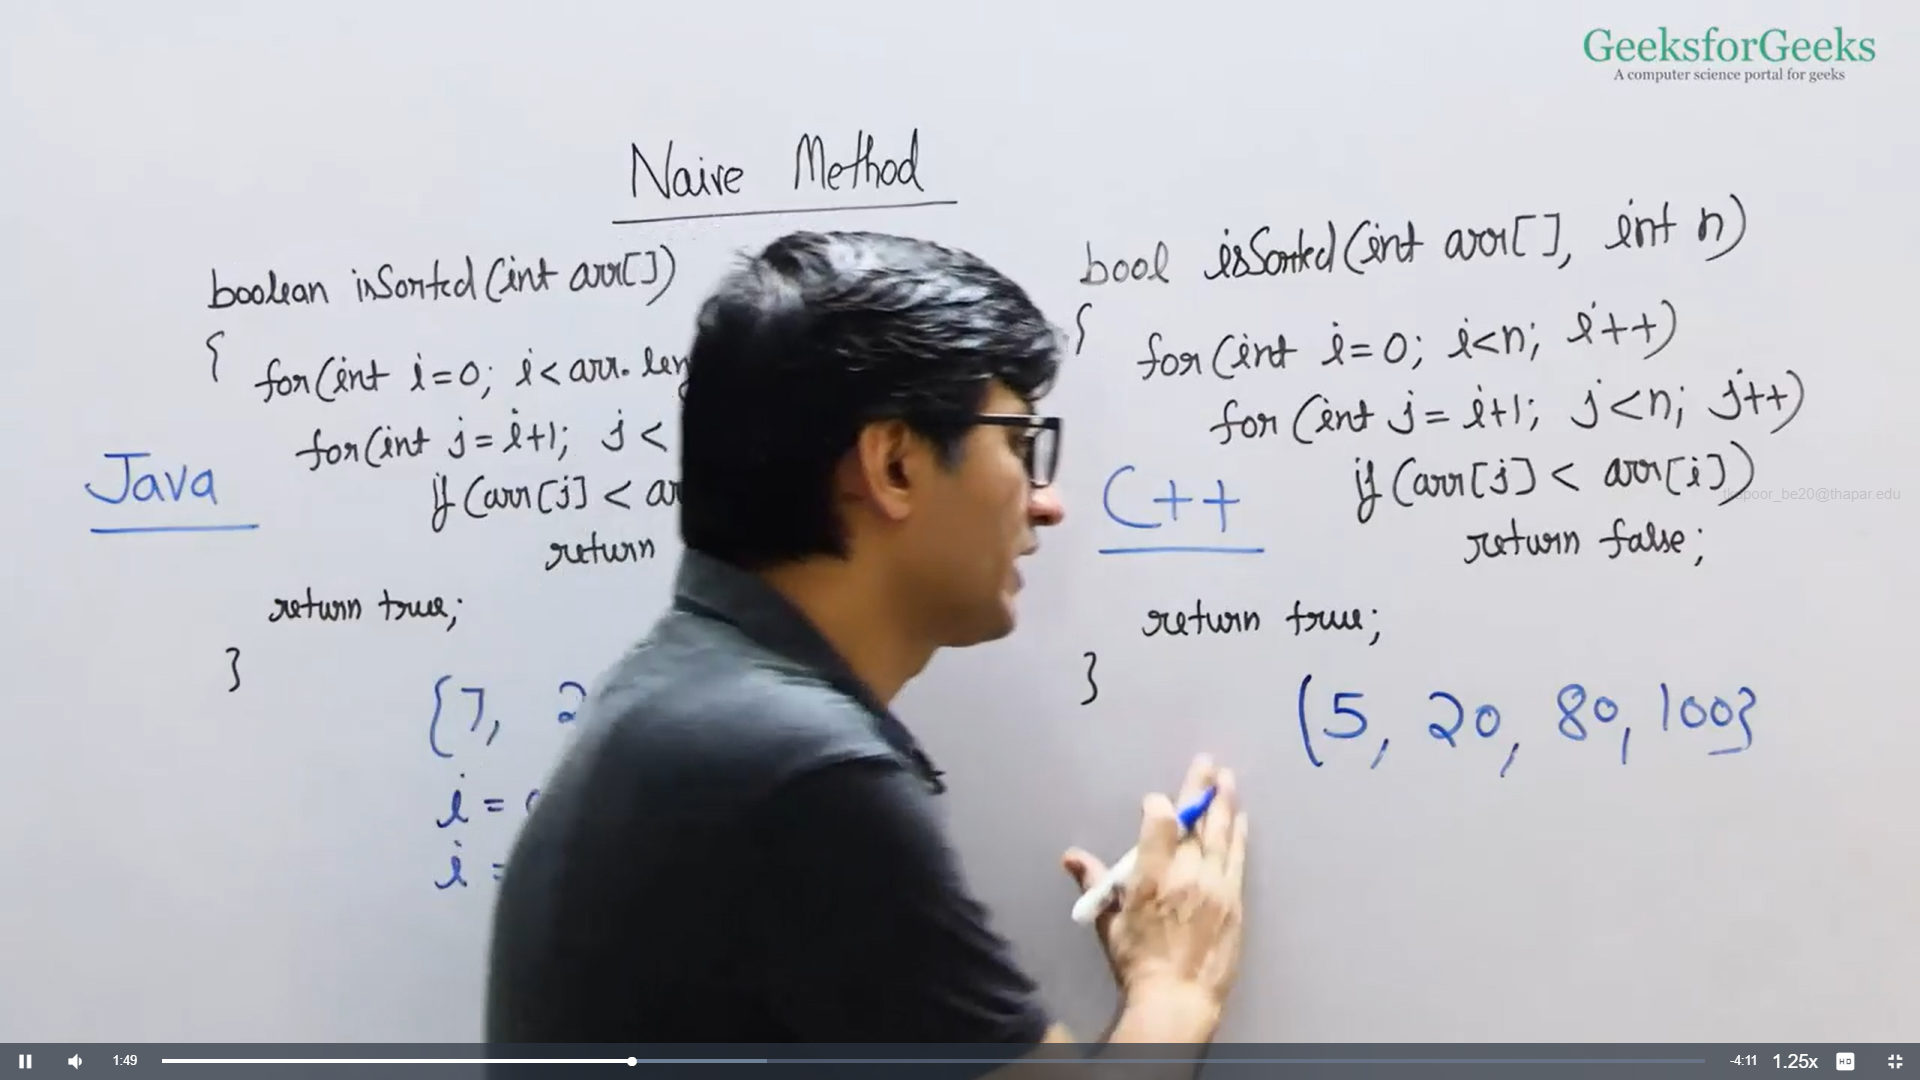 GeeksforGeeks
A computer science portal for geeks
Naive Method
boolean isSorted(int arr[])
{
for(int i=0; i<arr.len
for(int j=i+1; j<
if(arr[j]<ar
return
return true;
}
Java
{7, 2
i=
i=
bool isSorted(int arr[], int n)
{
for(int i=0; i<n; i++)
for(int j=i+1; j<n; j++)
if(arr[j]<arr[i])
return false;
return true;
}
C++
{5, 20, 80, 100}
tkapoor_be20@thapar.edu
1:49
-4:11
1.25x
HD